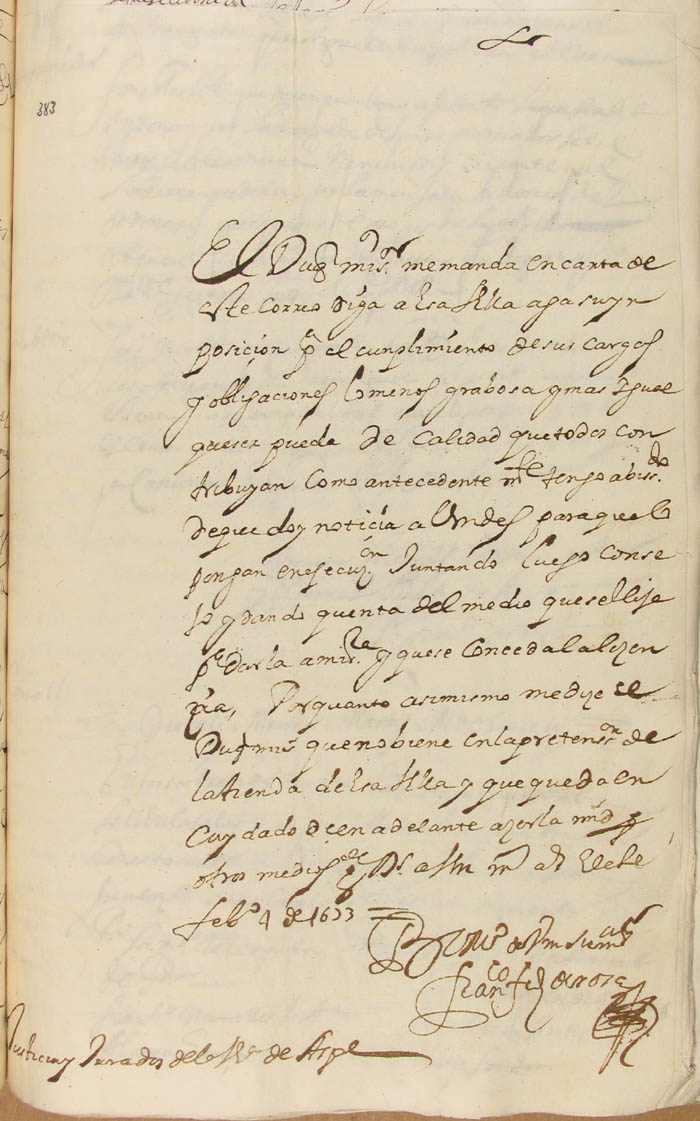 383
El Duq mi sr memanda en carta de
este correo diga a essa Villa aga su yn
posicion pa el cunplimiento de sus cargos
y obligaciones lo menos grabosa y mas Igual
que ser pueda de calidad que todos con
tribuyan como antecedente mte tengo abisdo
de que doy noticia a Vmdes para que lo
pongan en esecuon Juntando luego conse
Jo y dando quenta del medio que se elije
pa darla a mi y que se conceda la lizen
zia, Por quanto asimismo me dize el
Duq mi sr que no biene en la pretenson de
la tienda de essa Villa y que queda en
cuydado de en adelante azerla md
otros medios Ds a Vm ms as Elche
febo 4 de 1633
de Vm
Franco
Justicia y Jurados de la Va de Aspe